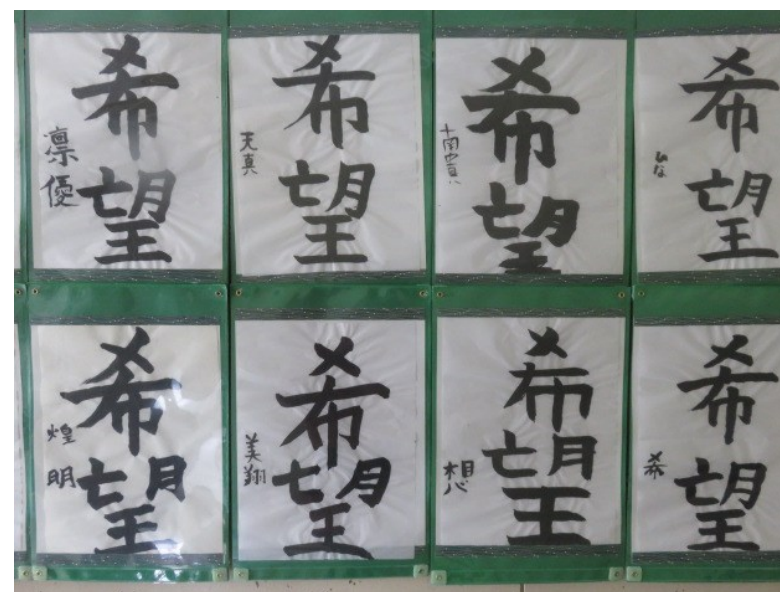 希望
凛優
希望
天真
希望
希望
ひな
希望
煌明
希望
美翔
希望
想
希望
希